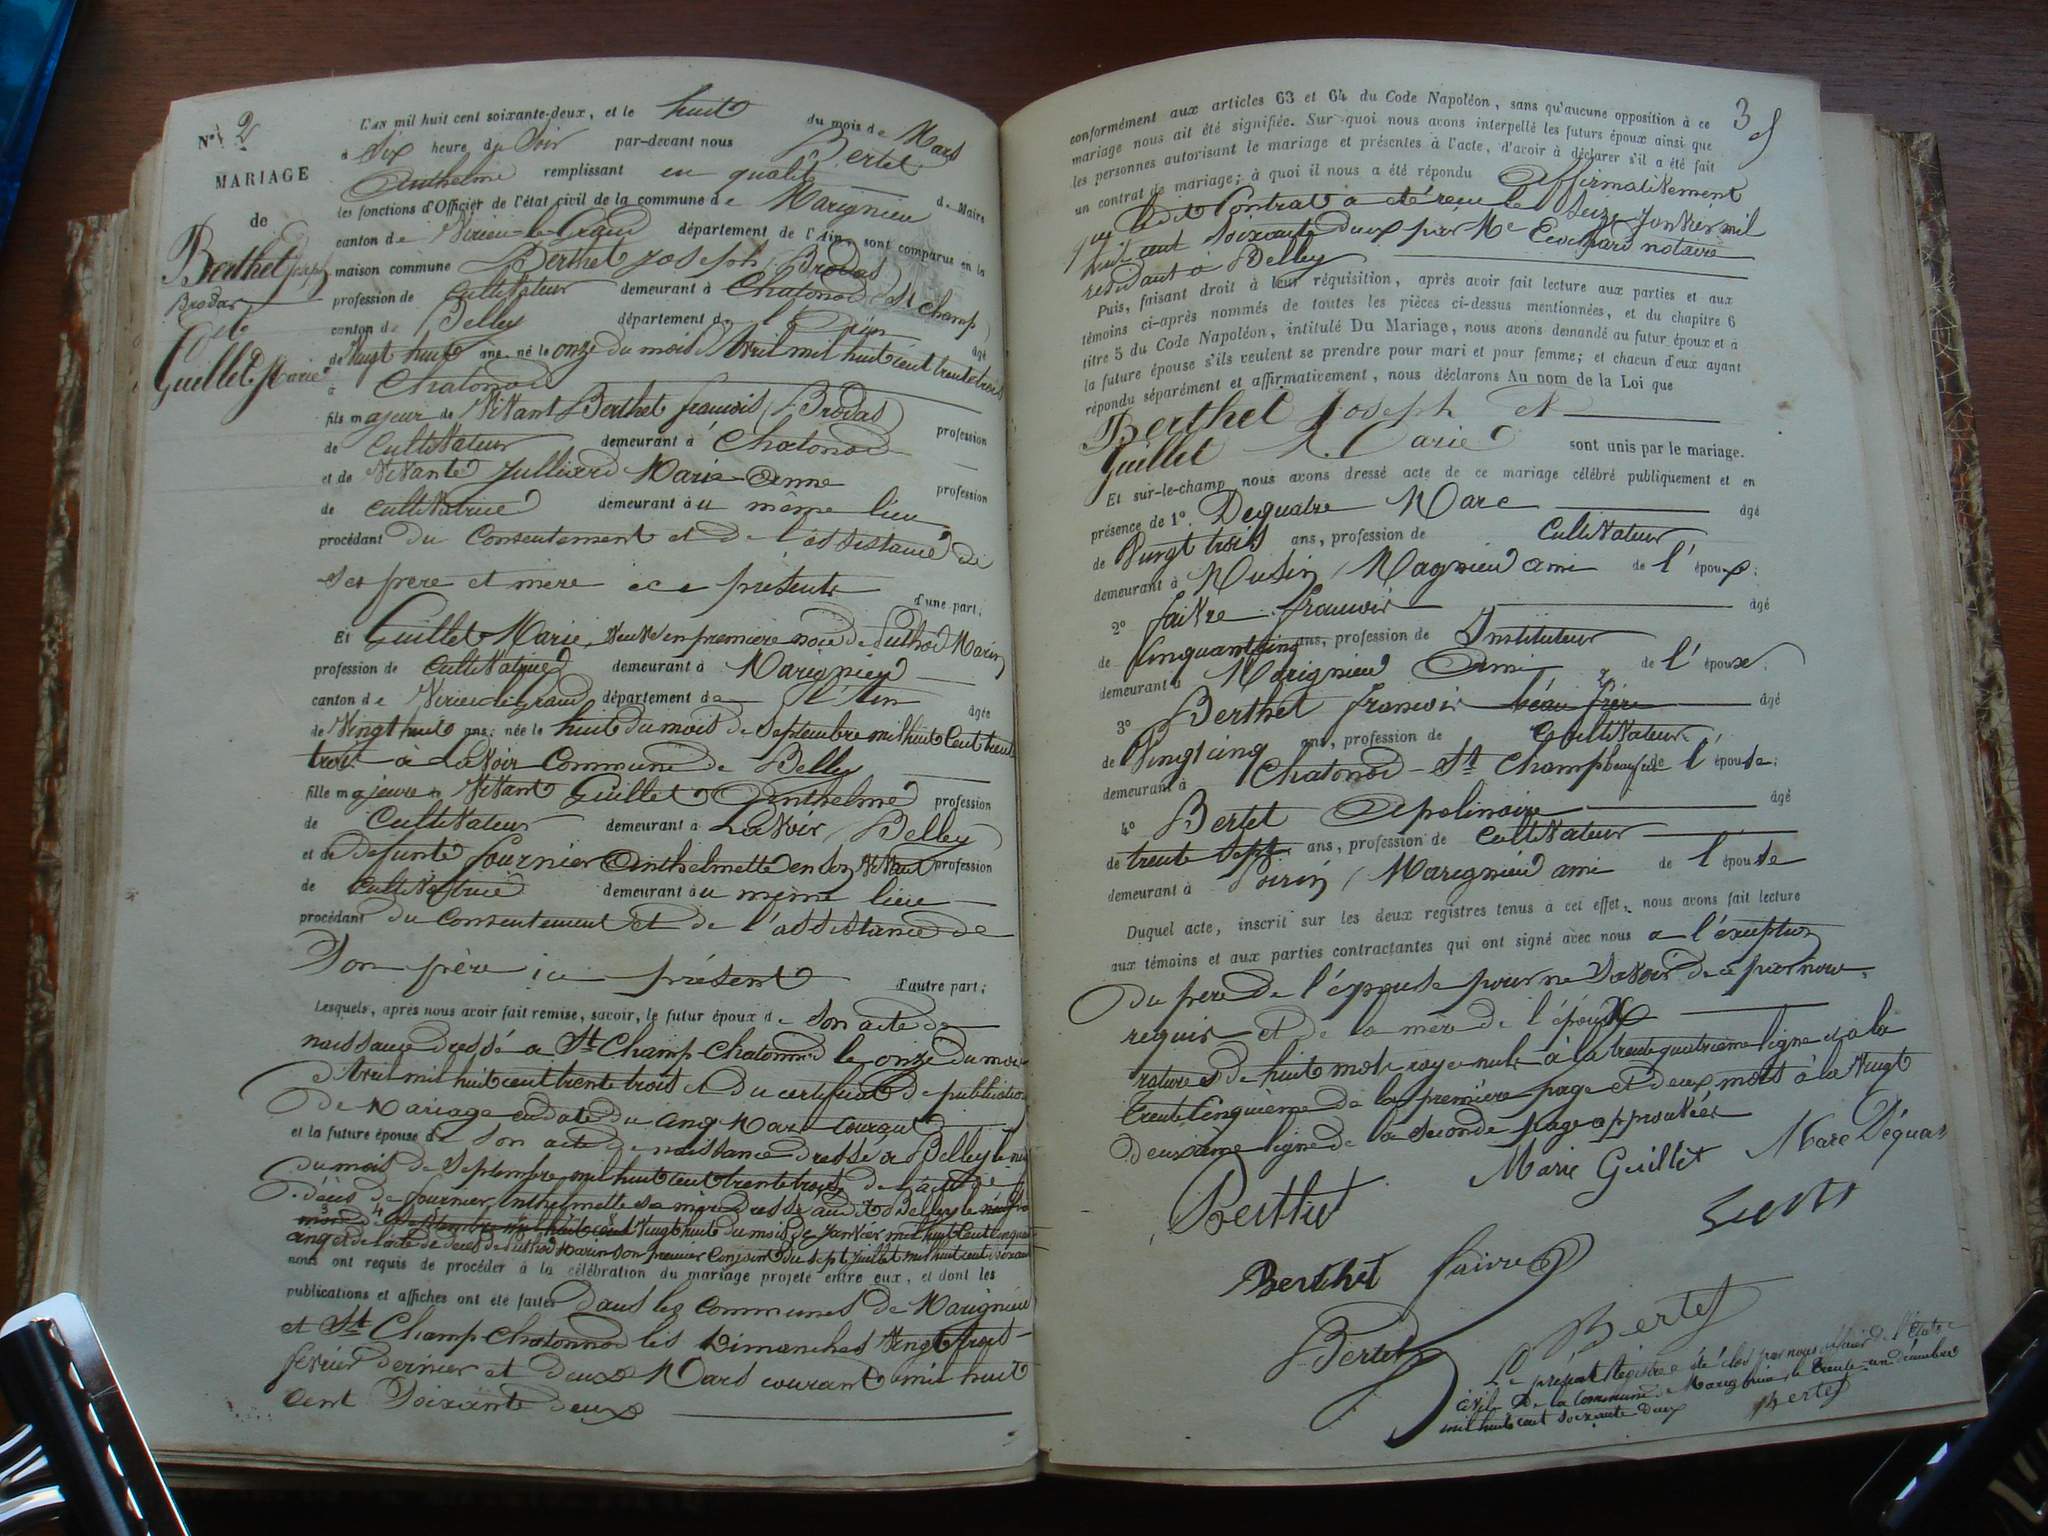 N° 2
MARIAGE
de
Berthet Joseph
Brodas
et
Guillet Marie
L'AN mil huit cent soixante-deux, et le huit du mois de Mars
à Six heure du Soir par-devant nous Bertet
Anthelme remplissant en qualité de Maire
les fonctions d'Officier de l'état civil de la commune de Marignieu
canton de Virieu-le-Grand département de l'Ain, sont comparus en la
maison commune Berthet Joseph (Brodas)
profession de Cultivateur demeurant à Chatonod (St Champ)
canton de Belley département de l'Ain âgé
de Vingt huit ans, né le onze du mois d'Avril mil huit cent trente trois
à Chatonod
fils majeur de Vivant Berthet françois (Brodas) profession
de Cultivateur demeurant à Chatonod
et de Vivante Julliard Marie-Anne profession
de cultivatrice demeurant au même lieu
procédant du Consentement et de l'assistance de
ses père et mère ici présents
d'une part;
Et Guillet Marie, veuve en première noce de Marin
profession de Cultivatrice demeurant à Marignieu
canton de Virieu-le-grand département de l'Ain âgée
de Vingt huit ans; née le huit du mois de Septembre mil huit Cent trente
trois à LaVoir Commune de Belley
fille majeure de Vivant Guillet Anthelme profession
de Cultivateur demeurant à LaVoir (Belley)
et de défunte fournier Anthelmette en son Vivant profession
de cultivatrice demeurant au même lieu
procédant du Consentement et de l'assistance de
Son père ici présent d'autre part;
Lesquels, après nous avoir fait remise, savoir, le futur époux de Son acte de
naissance dressé à St Champ-Chatonnod le onze du mois
d'Avril mil huit cent trente trois et du certificat de publication
de Mariage en date du cinq Mars courant
et la future épouse de Son acte de naissance dressé à Belley le neuf
du mois de Septembre mil huit cent trente trois, de l'acte de
décès de fournier Anthelmette sa mère dressé audit Belley le
Septembre mil huit cent Vingt huit du mois de Janvier mil huit Cent cinquante
cinq et de l'acte de décès de Marin son premier Conjoint du sept Juillet mil huit cent
nous ont requis de procéder à la célébration du mariage projeté entre eux, et dont les
publications et affiches ont été faites dans les communes de Marignieu
et St Champ-Chatonnod les Dimanches Vingt trois
février dernier et deux Mars courant mil huit
cent Soixante deux
3
conformément aux articles 63 et 64 du Code Napoléon, sans qu'aucune opposition à ce
mariage nous ait été signifiée. Sur quoi nous avons interpellé les futurs époux ainsi que
les personnes autorisant le mariage et présentes à l'acte, d'avoir à déclarer s'il a été fait
un contrat de mariage; à quoi il nous a été répondu Affirmativement
que ledit Contrat a été reçu le Seize Janvier mil
huit cent soixante deux par Me notaire
résidant à Belley
Puis, faisant droit à leur réquisition, après avoir fait lecture aux parties et aux
témoins ci-après nommés de toutes les pièces ci-dessus mentionnées, et du chapitre 6
titre 5 du Code Napoléon, intitulé Du Mariage, nous avons demandé au futur époux et à
la future épouse s'ils veulent se prendre pour mari et pour femme; et chacun d'eux ayant
répondu séparément et affirmativement, nous déclarons Au nom de la Loi que
Berthet Joseph et
Guillet Marie sont unis par le mariage.
Et sur-le-champ nous avons dressé acte de ce mariage célébré publiquement et en
présence de 1° Dequatre Marc âgé
de Vingt trois ans, profession de Cultivateur
demeurant à Musin (Magnieu) ami de l'époux;
2° faivre françois âgé
de Cinquante cinq ans, profession de Instituteur
demeurant à Marignieu Ami de l'époux;
3° Berthet françois beau frère âgé
de Vingt cinq ans, profession de Cultivateur
demeurant à Chatonod-St Champ beau frère de l'épouse;
4° Bertet Apolinaire âgé
de trente sept ans, profession de Cultivateur
demeurant à Poirin (Marignieu) ami de l'épouse
Duquel acte, inscrit sur les deux registres tenus à cet effet, nous avons fait lecture
aux témoins et aux parties contractantes qui ont signé avec nous a l'exception
du père de l'épouse pour ne savoir de ce par nous
requis et de la mère de l'époux
ratures de huit mots rayé nuls à la trente quatrième ligne et a la
trente Cinquième de la première page et deux mots à la Vingt
deuxième ligne de la seconde page approuvées
Berthet Marie Guillet Marc Déquar
Berthet faivre
Bertet Bertet
Le présent Registre a été clos par nous officier de l'état
civil de la Commune de Marignieu, le trente un décembre
mil huit cent soixante deux Bertet